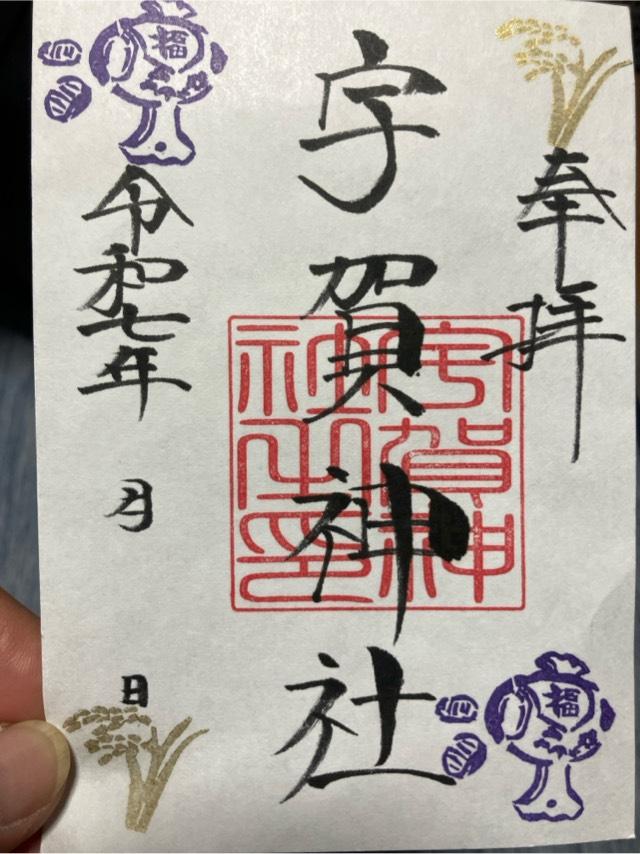 奉拝
宇賀神社
宇賀神
社之印
令和七年 月 日
福
福